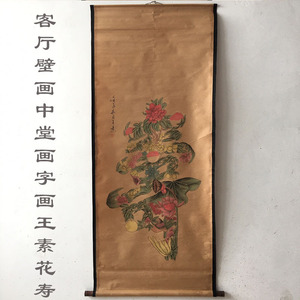 客厅壁画中堂画字画王素花寿